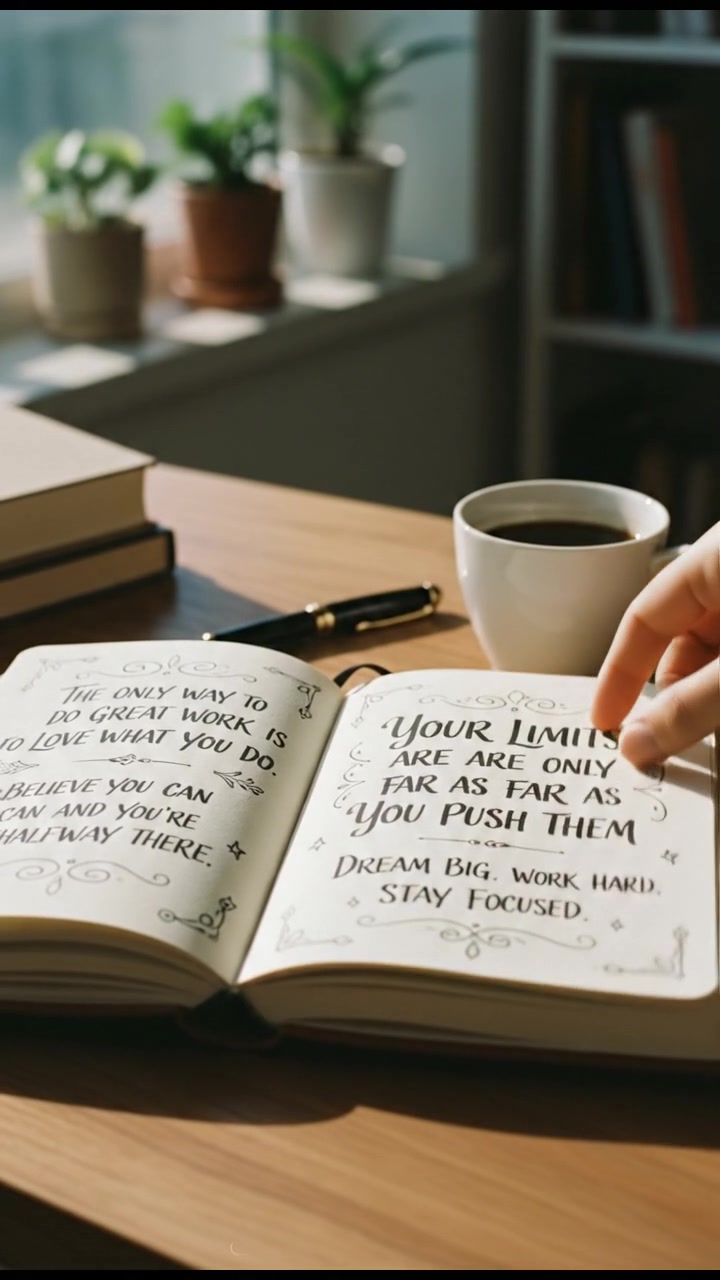 THE ONLY WAY TO
DO GREAT WORK IS
TO LOVE WHAT YOU DO.
BELIEVE YOU CAN
CAN AND YOU'RE
HALFWAY THERE.
YOUR LIMITS
ARE ARE ONLY
FAR AS FAR AS
YOU PUSH THEM
DREAM BIG. WORK HARD.
STAY FOCUSED.